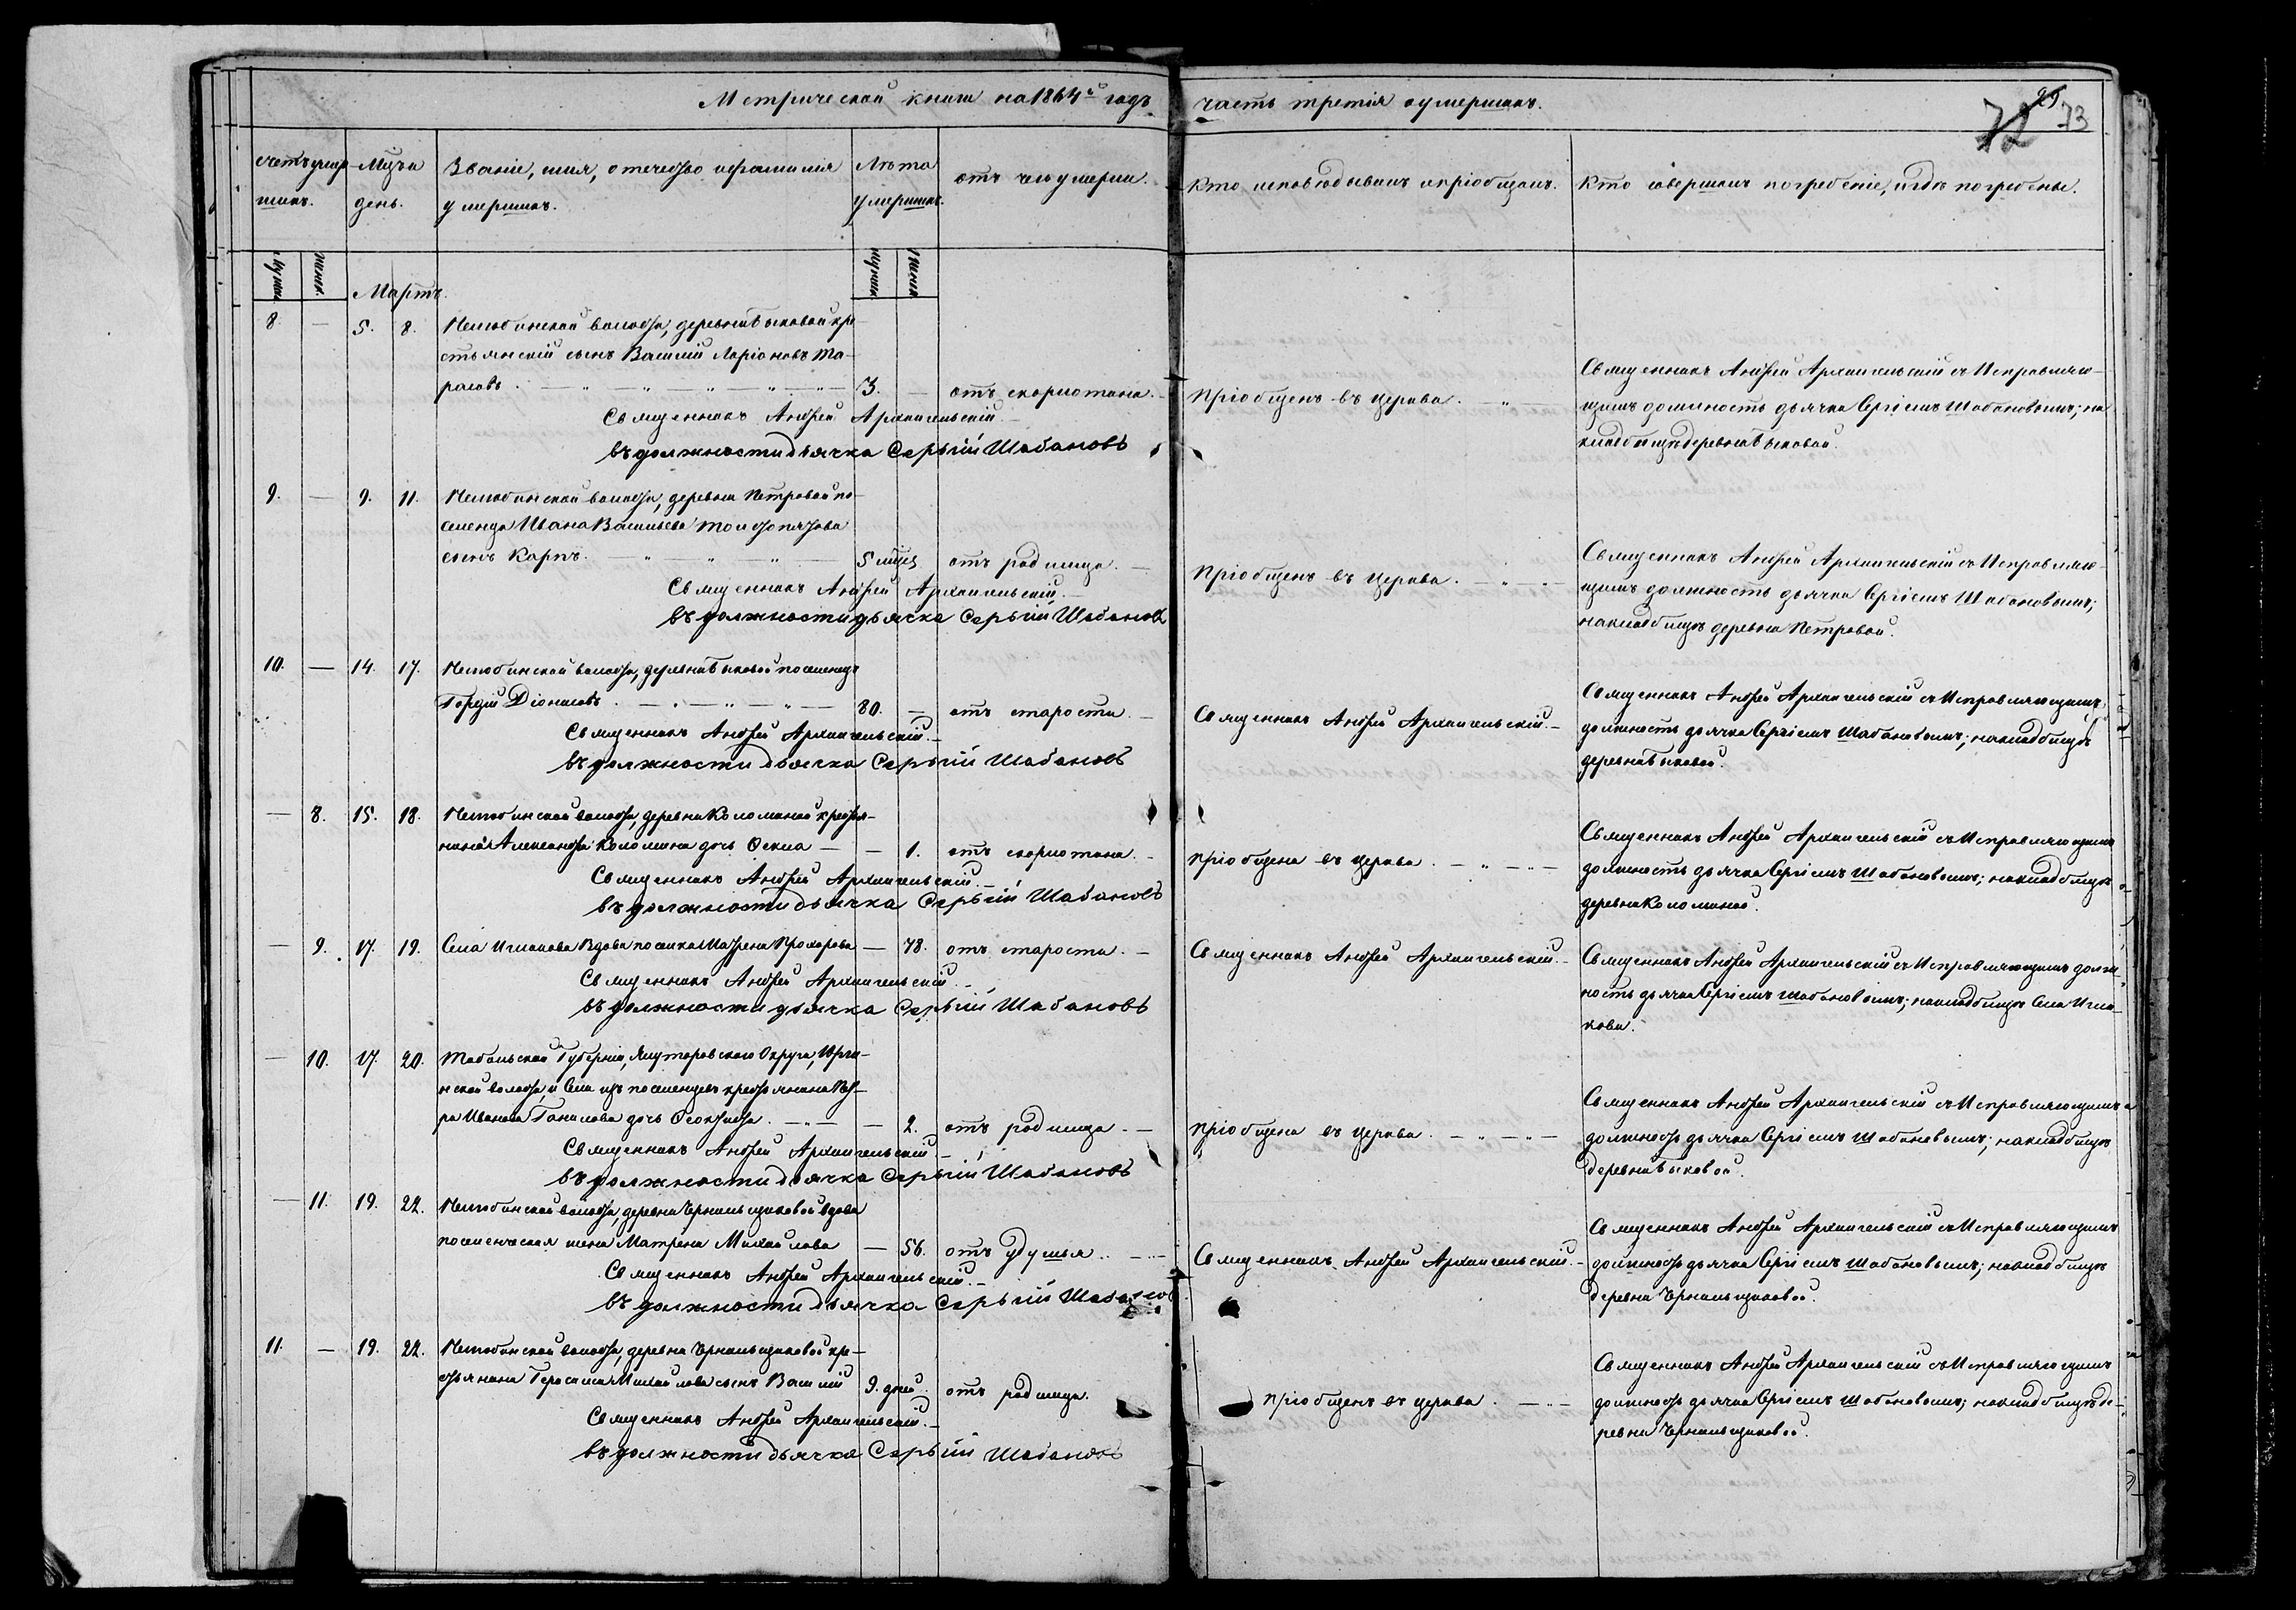 Метрической книги на 1864й годъ часть третія о умершихъ.
29. 72 73
Счетъ умер- Мцъ и Званіе, имя, отечество и фамилія Лѣта отъ чего умерли. Кто исповѣдывалъ и пріобщалъ. Кто совершалъ погребеніе, и гдѣ погребены.
шихъ. день. умершихъ. умершихъ.
Мужеск. Женск. Мартъ. Мужеск. Женск.
8. — 5. 8. волости, деревни Быковой кре-
стьянскій сынъ Василій Ларіоновъ Та-
расовъ. 3. — отъ скорлотина.
Пріобщенъ въ церкви.
Священникъ Андрей Архангельскій съ Исправляю-
щимъ должность дьячка Сергіемъ Шабановымъ; на
кладбищѣ деревни Быковой.
Священникъ Андрей Архангельскій.
въ должности дьячка Сергій Шабановъ
9. — 9. 11. волости, деревни Петровой по-
селенца Ивана Васильева
сынъ Карпъ. 5 мцѣв отъ родимца.
Пріобщенъ въ церкви.
Священникъ Андрей Архангельскій съ Исправляю-
щимъ должность дьячка Сергіемъ Шабановымъ;
на кладбищѣ деревни Петровой.
Священникъ Андрей Архангельскій.
въ должности дьячка Сергій Шабановъ
10. — 14. 17. волости, деревни Быковой поселенецъ
Гордій Діонисовъ. 80. — отъ старости.
Священникъ Андрей Архангельскій.
Священникъ Андрей Архангельскій съ Исправляющимъ
должность дьячка Сергіемъ Шабановымъ; на кладбищѣ
деревни Быковой.
Священникъ Андрей Архангельскій.
въ должности дьячка Сергій Шабановъ
— 8. 15. 18. волости, деревни Коломиной крестья-
нина Александра Коломина дочь Фекла — 1. отъ скорлотина.
пріобщена въ церкви.
Священникъ Андрей Архангельскій съ Исправляющимъ
должность дьячка Сергіемъ Шабановымъ; на кладбищѣ
деревни Коломиной.
Священникъ Андрей Архангельскій.
въ должности дьячка Сергій Шабановъ
— 9. 17. 19. Села Игнакова Вдова Прохорова — 78. отъ старости.
Священникъ Андрей Архангельскій.
Священникъ Андрей Архангельскій съ Исправляющимъ долж-
ность дьячка Сергіемъ Шабановымъ; на кладбищѣ Села
Священникъ Андрей Архангельскій.
въ должности дьячка Сергій Шабановъ
— 10. 17. 20. Тобольской Губерніи, Ялуторовскаго Округа,
нской волости, и Села изъ поселенцевъ крестьянина
Иванова дочь — 2. отъ родимца.
пріобщена въ церкви.
Священникъ Андрей Архангельскій съ Исправляющимъ
должность дьячка Сергіемъ Шабановымъ; на кладбищѣ
деревни Быковой.
Священникъ Андрей Архангельскій.
въ должности дьячка Сергій Шабановъ
— 11. 19. 22. волости, деревни Чернильщиковой вдова
поселенческая жена Матрена Михайлова — 56. отъ удушья.
Священникъ Андрей Архангельскій.
Священникъ Андрей Архангельскій съ Исправляющимъ
должность дьячка Сергіемъ Шабановымъ; на кладбищѣ
деревни Чернильщиковой.
Священникъ Андрей Архангельскій.
въ должности дьячка Сергій Шабановъ
11. — 19. 22. волости, деревни Чернильщиковой кре-
стьянина Герасима Михайлова сынъ Василій 9. дней. отъ родимца.
пріобщенъ въ церкви.
Священникъ Андрей Архангельскій съ Исправляющимъ
должность дьячка Сергіемъ Шабановымъ; на кладбищѣ де-
ревни Чернильщиковой.
Священникъ Андрей Архангельскій.
въ должности дьячка Сергій Шабановъ